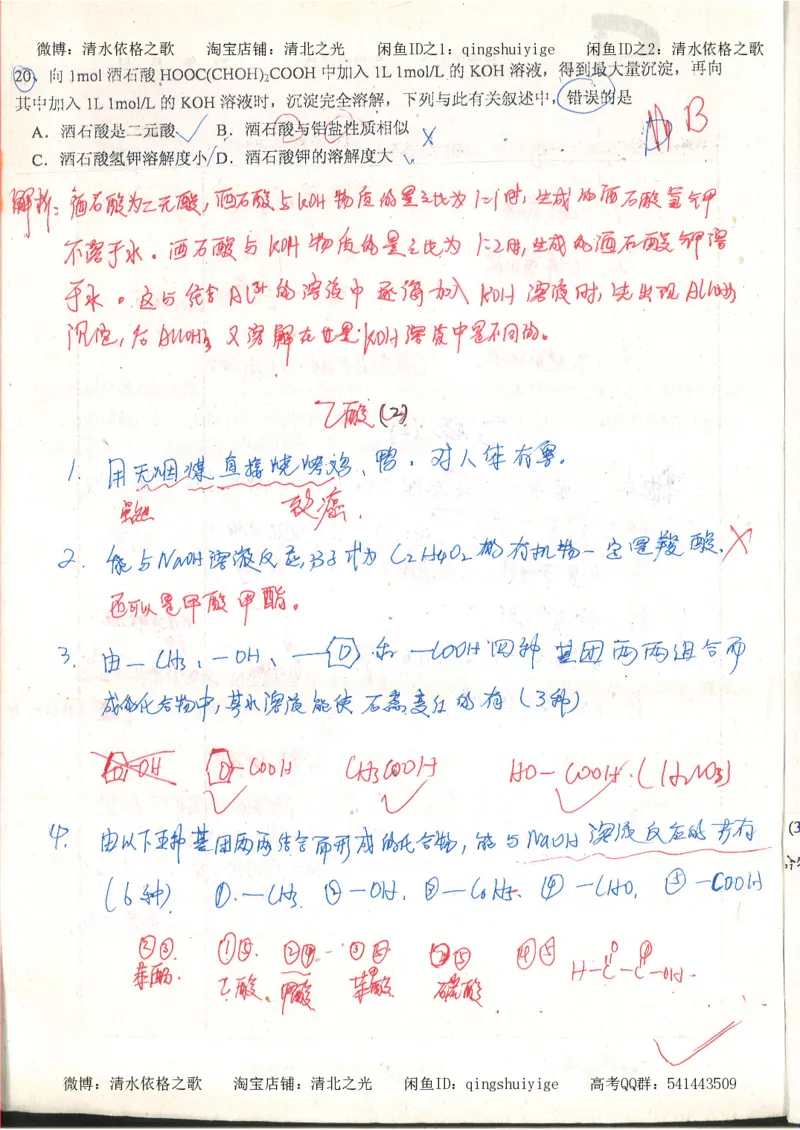 微博：清水依格之歌 淘宝店铺：清北之光 闲鱼ID之1：qingshuiyige 闲鱼ID之2：清水依格之歌
20、向 1mol 酒石酸 HOOC(CHOH)₂COOH 中加入 1L 1mol/L 的 KOH 溶液，得到最大量沉淀，再向
其中加入 1L 1mol/L 的 KOH 溶液时，沉淀完全溶解，下列与此有关叙述中，错误的是
B
A．酒石酸是二元酸√ B．酒石酸与铝盐性质相似 ×
C．酒石酸氢钾溶解度小√ D．酒石酸钾的溶解度大√
解析：酒石酸为二元酸，酒石酸与KOH物质的量之比为1:1时，生成的酒石酸氢钾
不溶于水。酒石酸与KOH物质的量之比为1:2时，生成的酒石酸钾溶
于水。这与往含Al³⁺的溶液中逐滴加入KOH溶液时，先出现Al(OH)₃
沉淀，后Al(OH)₃又溶解在过量KOH溶液中是不同的。
乙酸(2)
1. 用无烟煤直接烧烤鸡、鸭，对人体有害。
致癌.
2. 能与NaOH溶液反应，分子式为C₂H₄O₂的有机物一定是羧酸. ×
还可以是甲酸甲酯。
3. 由—CH₃、—OH、—和—COOH四种基团两两组合而
成的化合物中，其水溶液能使石蕊变红的有(3种)
OH COOH CH₃COOH HO—COOH.(H₂CO₃)
4. 由以下五种基团两两结合而形成的化合物，能与NaOH溶液反应的共有
(6种) ①.—CH₃ ②—OH. ③—C₆H₅. ④—CHO. ⑤—COOH
②③. ①⑤. ②④. ③⑤ ②⑤ ④⑤ H—C—C—OH.
O O
苯酚. 乙酸. 甲酸 苯甲酸 碳酸
(3
微博：清水依格之歌 淘宝店铺：清北之光 闲鱼ID：qingshuiyige 高考QQ群：541443509